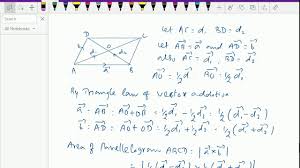 Search
All Notebooks
D
C
O
A
B
let AC = d₁ BD = d₂
let AB = a⃗ and AD = b⃗
also AC = d₁, BD = d₂
AO = ½ d₁
By Triangle law of vector addition
a⃗ = AB = AO + OB = ½ d₁ - ½ d₂ = ½ (d₁ - d₂)
b⃗ = AD = AO + OD = ½ d₁ + ½ d₂ = ½ (d₁ + d₂)
Area of Parallelogram ABCD = |a⃗ × b⃗|